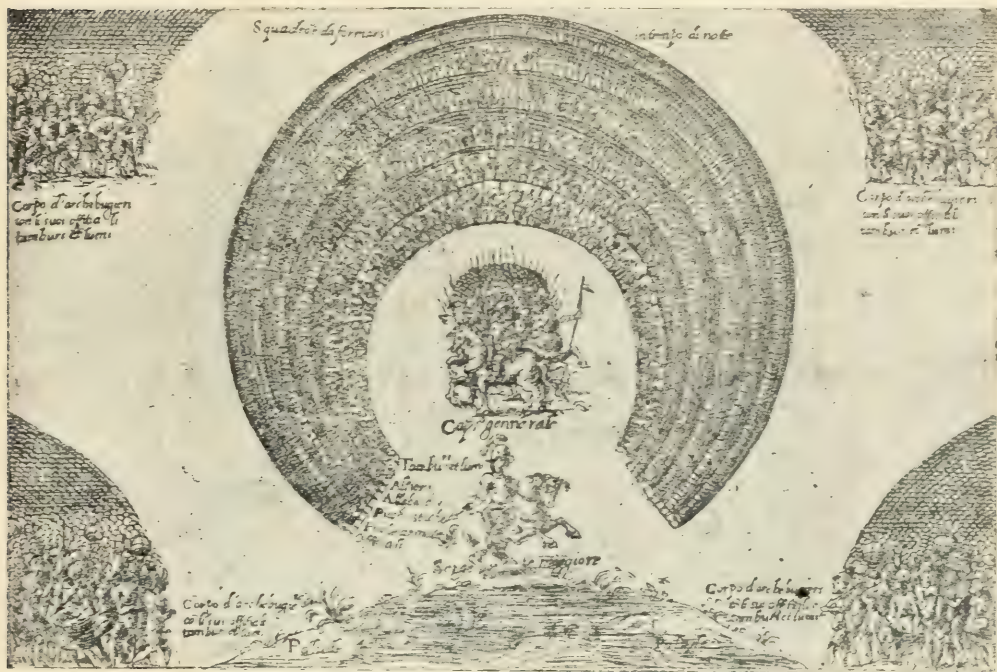 Squadrõe da formarsi in tempo di notte
Corpo d'archibugieri
con li suoi officiali
tamburi et lumi
Corpo d'archibugieri
con li suoi officiali
tamburi et lumi
Capo generale
Tamburi et lumi
Alfieri
Alabar
Picche secche
Officiali
Sergente Maggiore
Corpo d'archibugieri
cõ li sui officiali
tamburi et lumi
Corpo d'archibugieri
cõ li sui officiali
tamburi et lumi
Palude